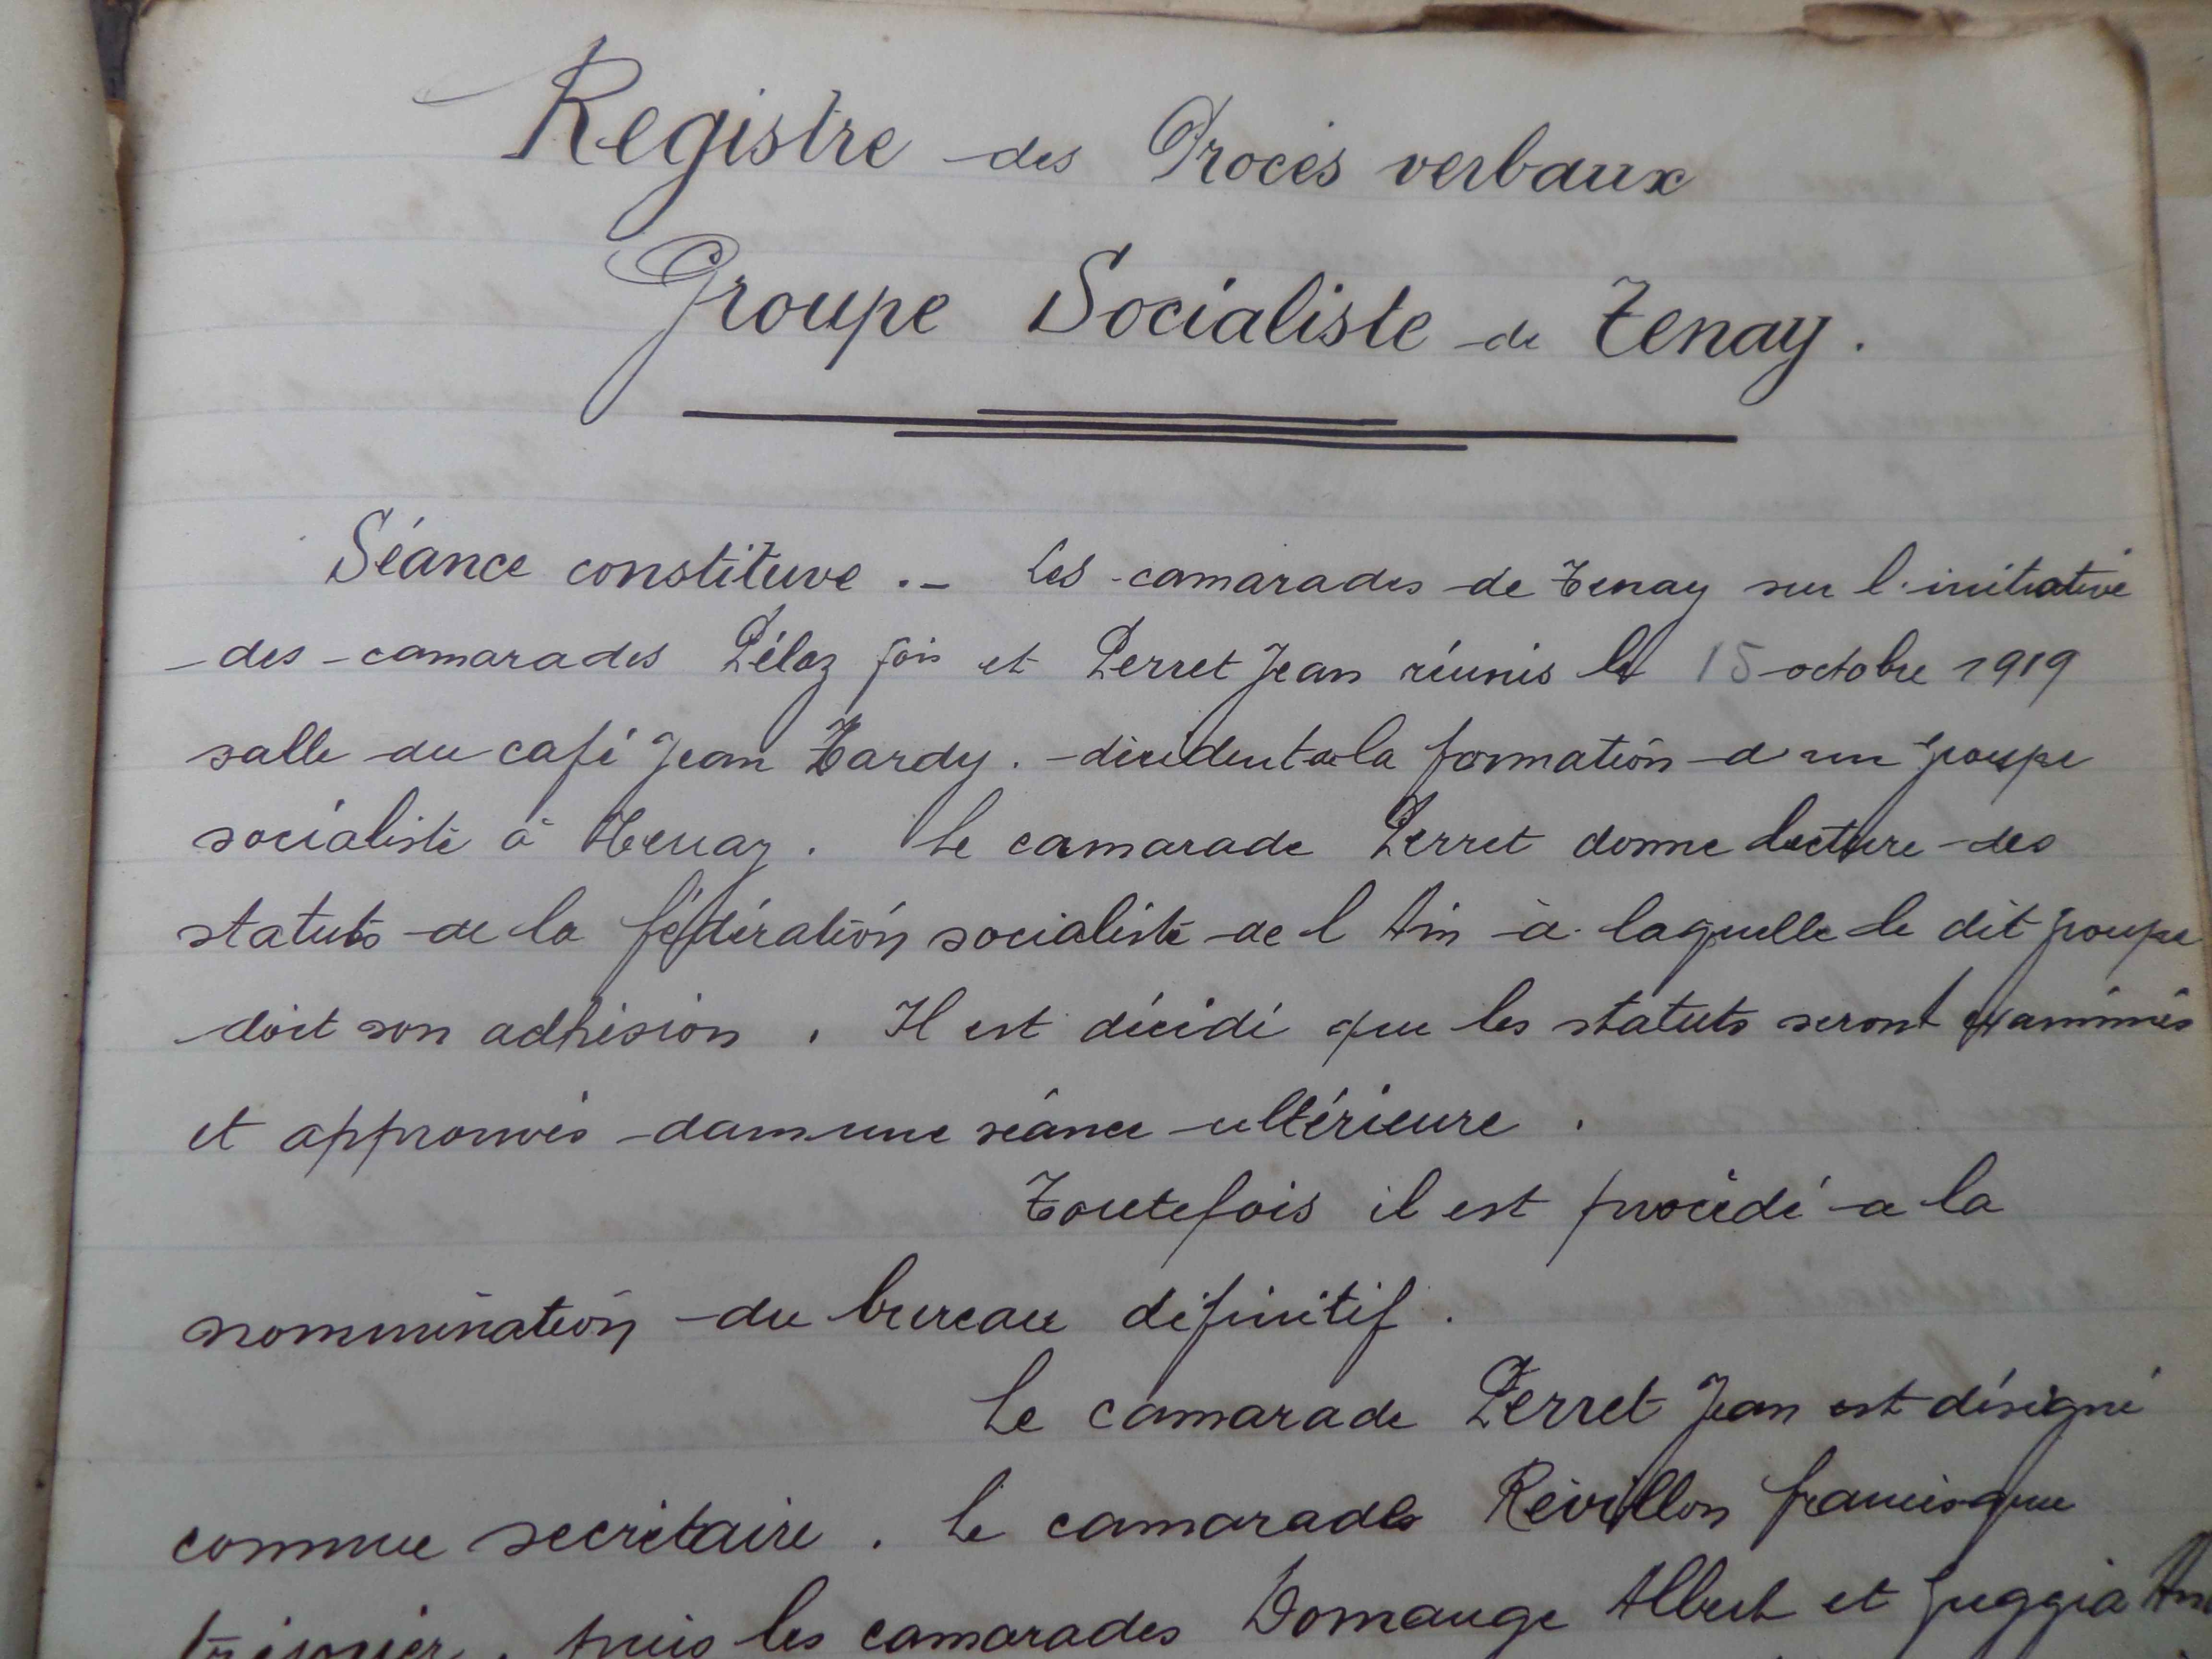 Registre des Procès verbaux
Groupe Socialiste de Tenay.
Séance constituve .- Les camarades de Tenay sur l'initiative
des camarades Pélaz fois et Perret Jean réunis le 15 octobre 1919
salle du café Jean Tardy. décident à la formation d'un groupe
socialiste à Tenay. Le camarade Perret donne lecture des
statuts de la fédération socialiste de l Ain à laquelle le dit groupe
doit son adhésion. Il est décidé que les statuts seront examinés
et approuvés dans une séance ultérieure.
Toutefois il est procédé a la
nommination du bureau définitif.
Le camarade Perret Jean est désigné
comme secrétaire. Le camarade Révillon francisque
trésorier, puis les camarades Domange Albert et Juggia